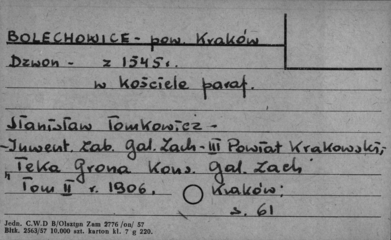 BOLECHOWICE - pow. Kraków
Dzwon - z 1545 r.
w kościele paraf.
Stanisław Tomkowicz -
- Inwent. zab. Gal. Zach - III Powiat Krakowski,
„Teka Grona Kons. Gal. Zach"
Tom II r. 1906. Kraków:
s. 61
Jedn. C.W.D B/Olsztyn Zam 2776 /on/ 57
Bltk. 2563/57 10.000 szt. karton kl. 7 g 220.